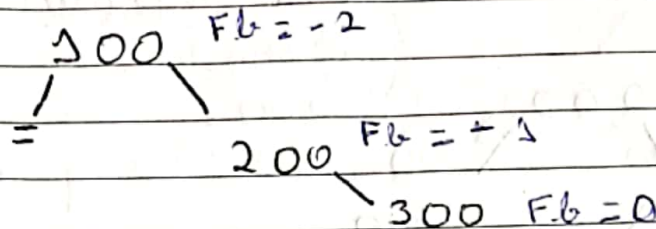 100 Fb = -2
=
200 Fb = -1
300 F.b = 0